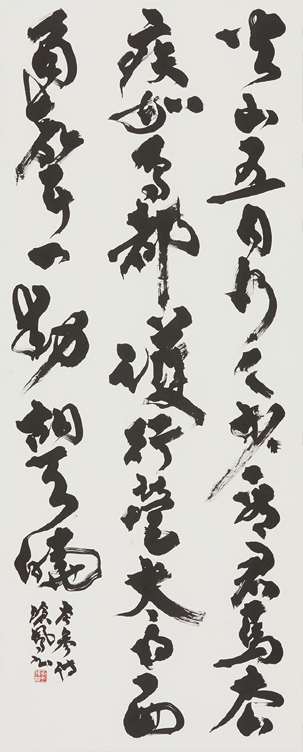 火山五月行人少看君馬去
疾如鳥都護行營太白西
角聲一動胡天曉
岑参詩